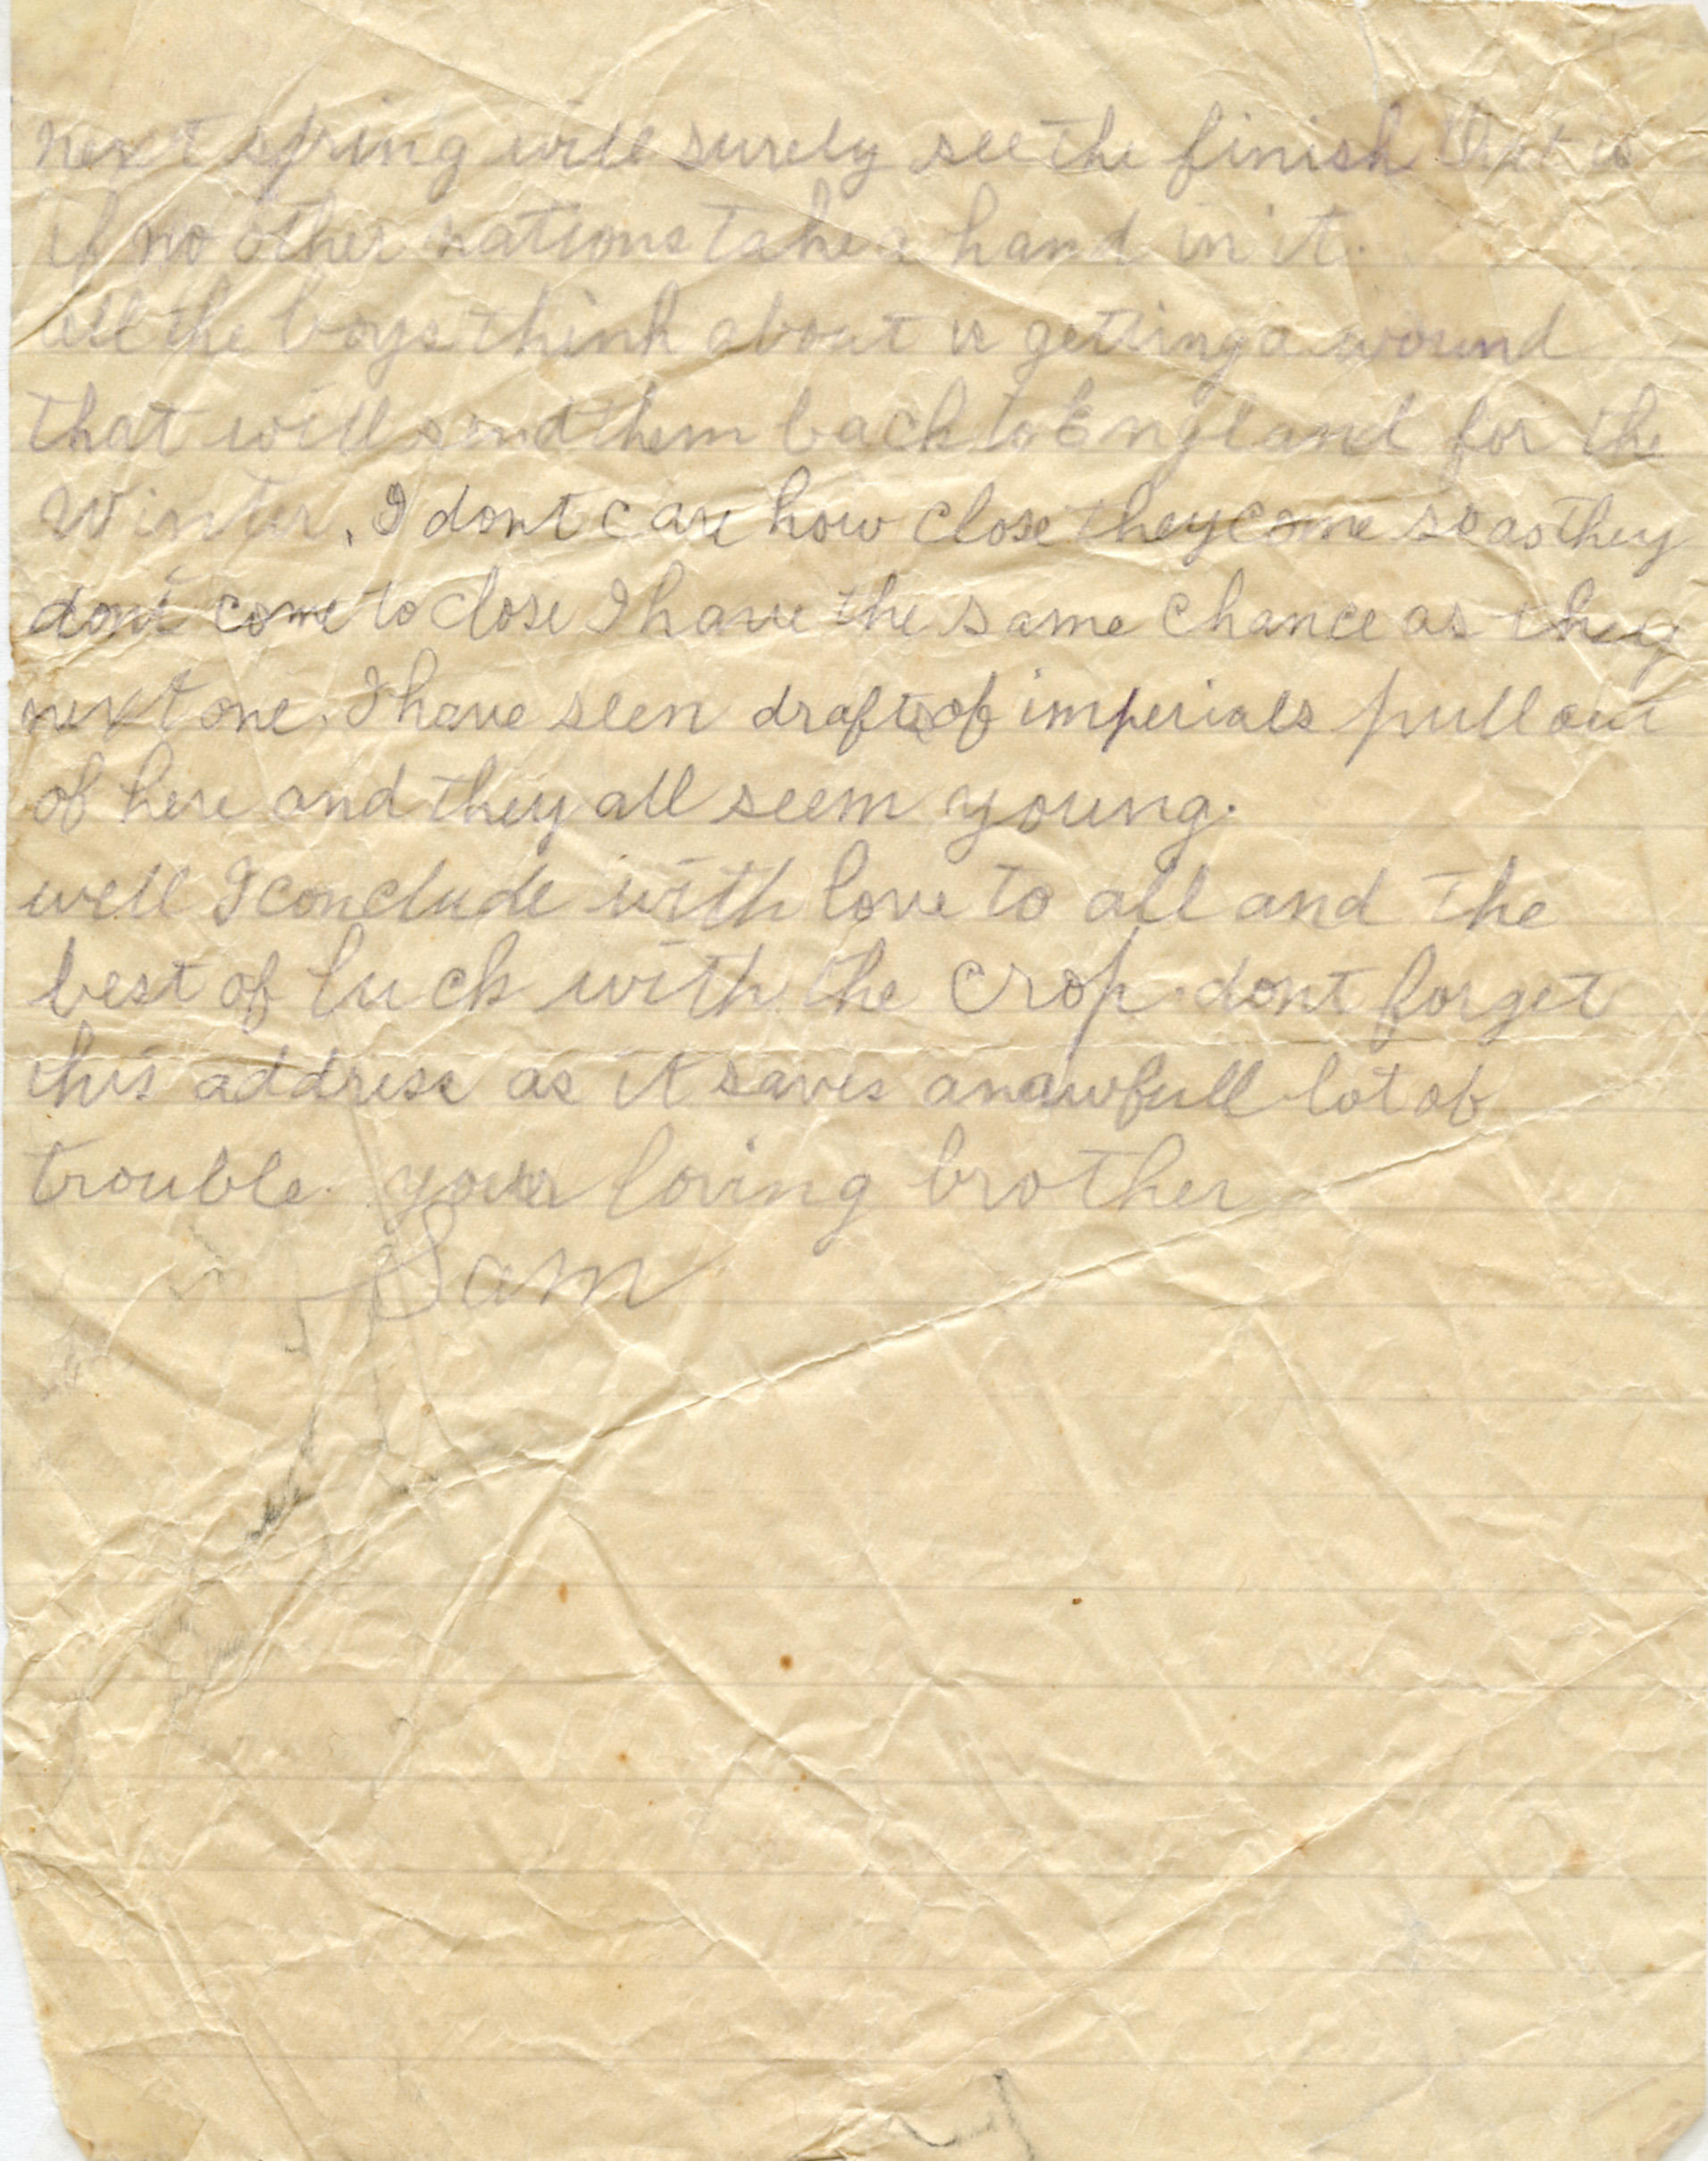 next spring will surely see the finish that is
if no other nations take a hand in it.
all the boys think about is getting a wound
that will send them back to England for the
Winter. I dont care how close they come so as they
dont come to close I have the same chance as they
next one. I have seen drafts of imperials pull out
of here and they all seem young.
well I conclude with love to all and the
best of luck with the crop. dont forget
this address as it saves an awfull lot of
trouble. your loving brother
Sam